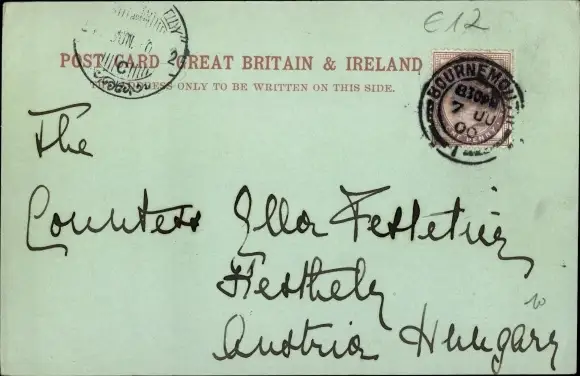 €12
POST CARD GREAT BRITAIN & IRELAND
THE ADDRESS ONLY TO BE WRITTEN ON THIS SIDE.
BOURNEMOUTH
7 JU
00
The
Countess Ella Festetics
Kesthely
Austria Hungary